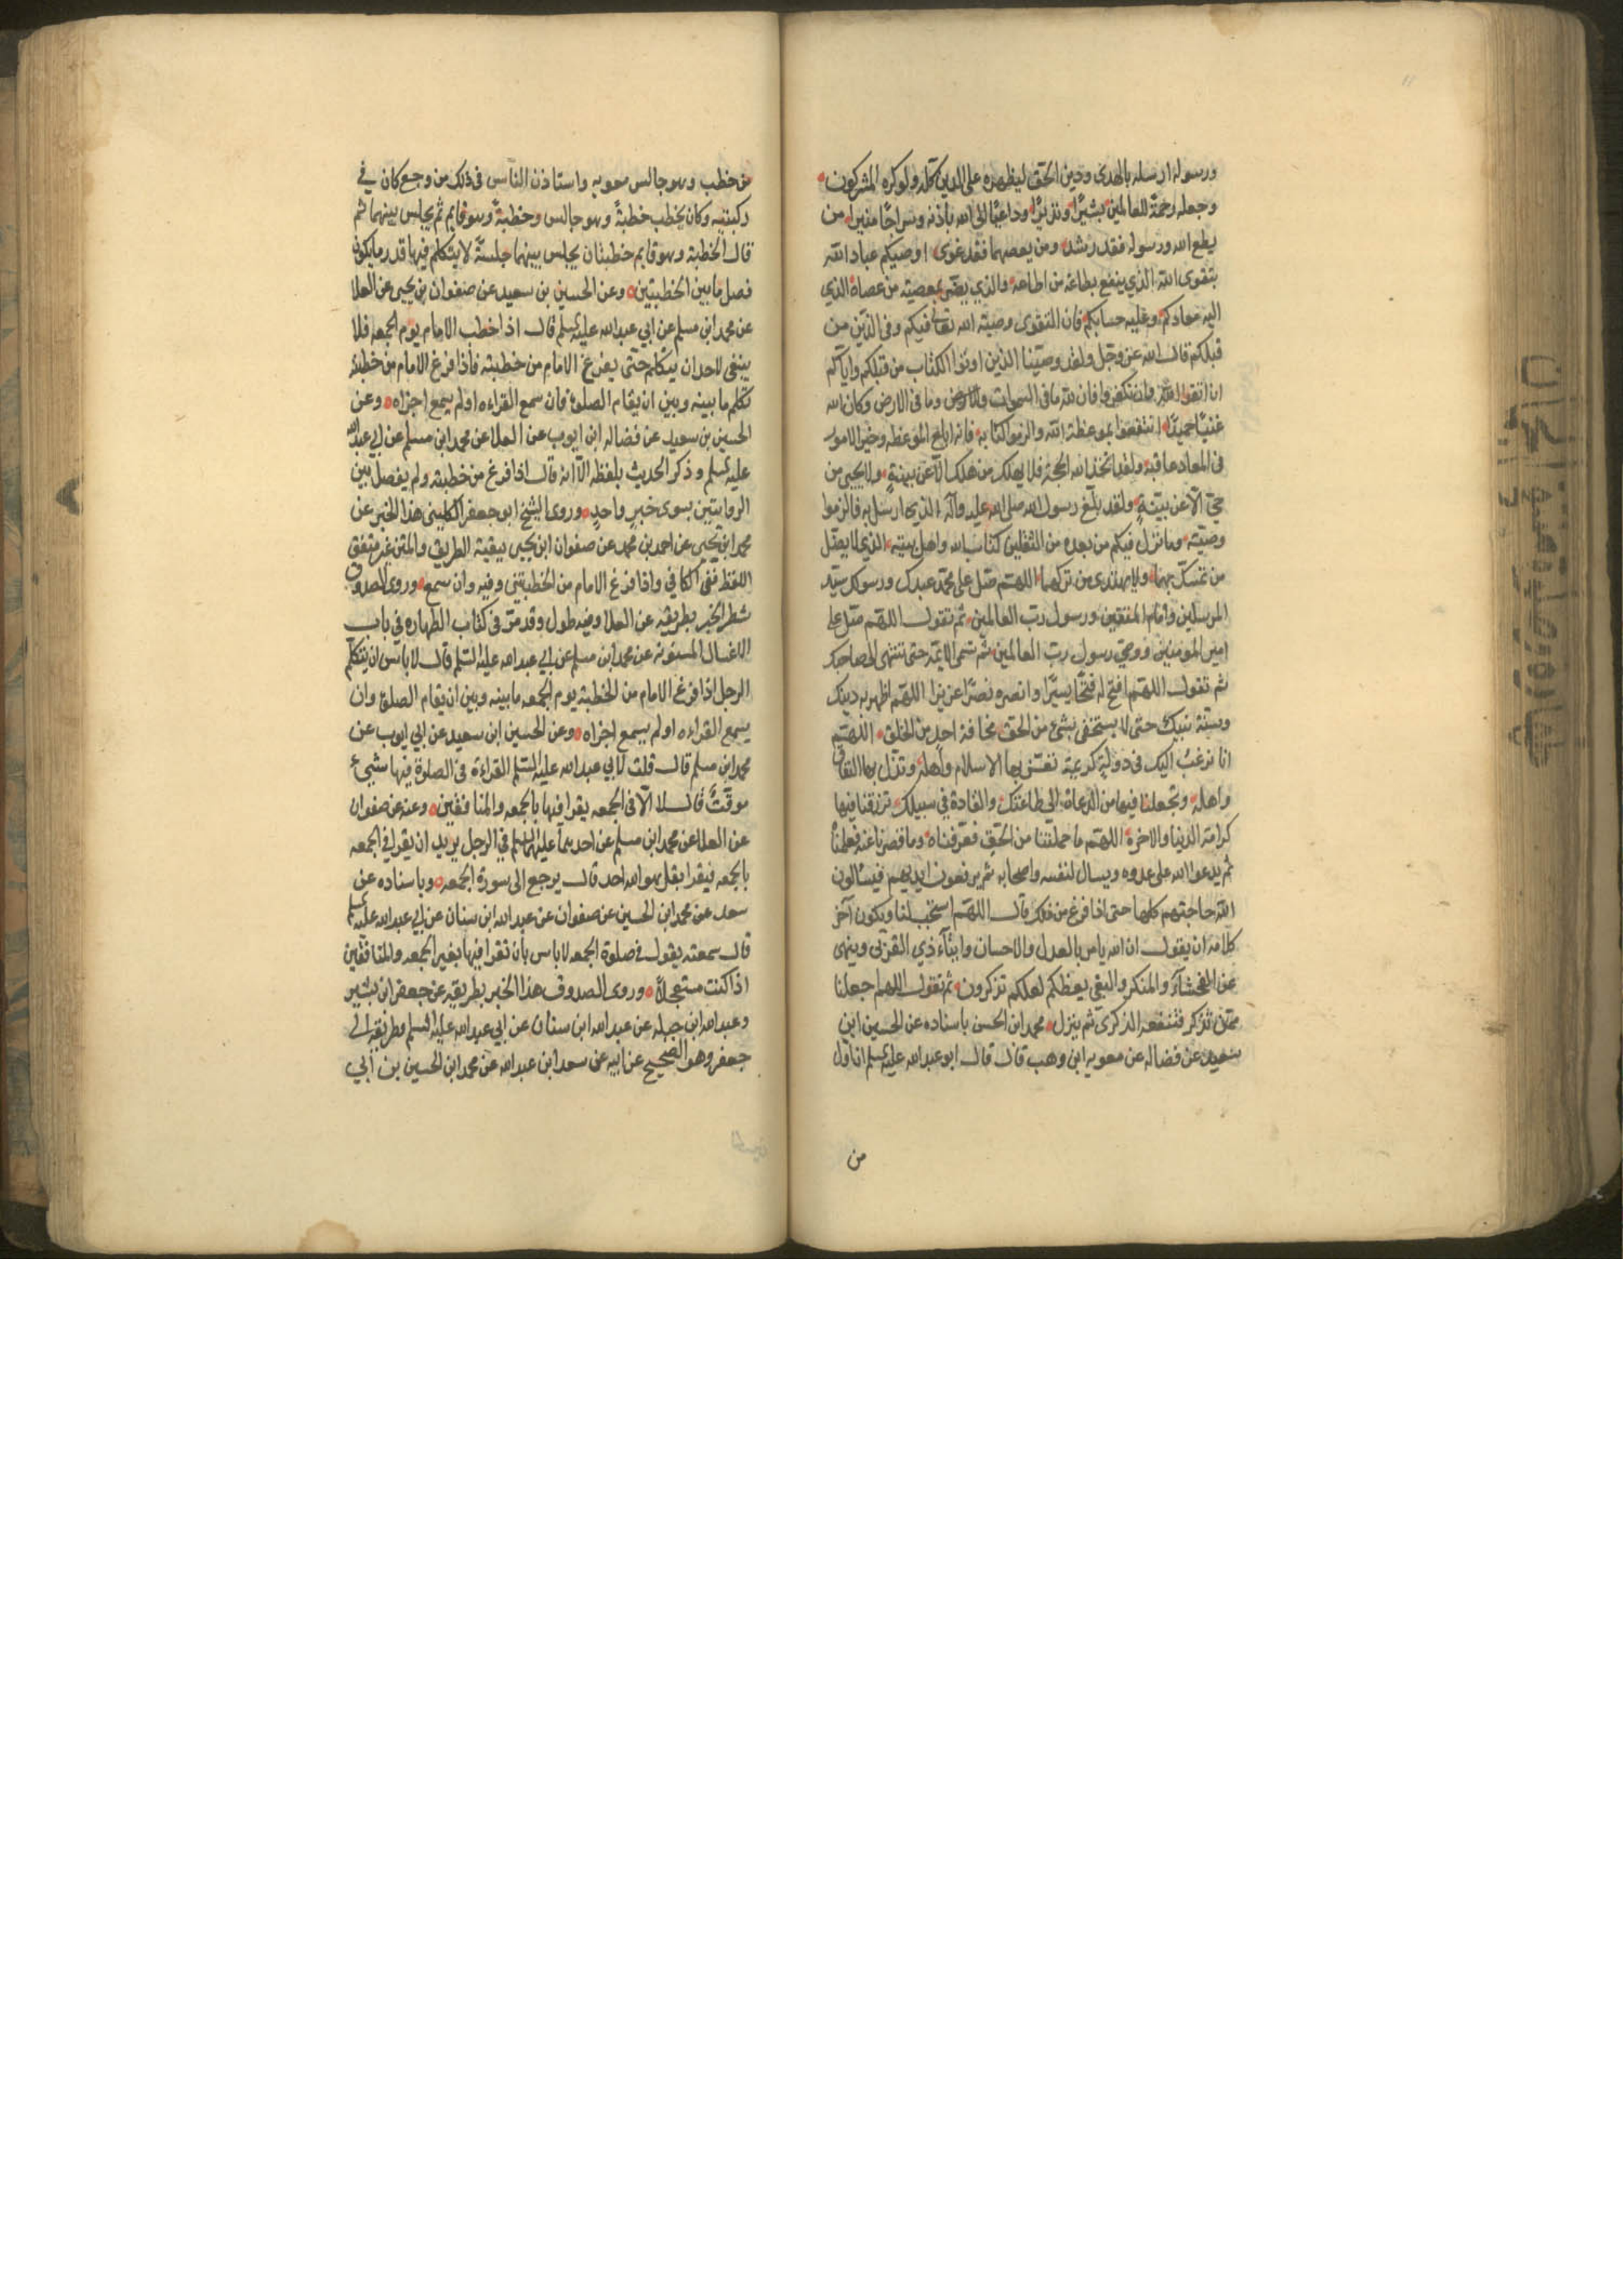 ورسوله ارسله بالهدى ودين الحق ليظهره على الدين كله ولو كره المشركون
وجعله رحمة للعالمين بشيرًا ونذيرًا وداعيًا الى الله باذنه وسراجًا منيرا من
يطع الله ورسوله فقد رشد ومن يعصهما فقد غوى اوصيكم عباد الله
بتقوى الله الذي ينفع بطاعته من اطاعه والذي يضر بمعصيته من عصاه الذي
اليه معادكم وعليه حسابكم فان التقوى وصية الله تعالى فيكم وفي الذين من
قبلكم قال الله عز وجل ولقد وصينا الذين اوتوا الكتاب من قبلكم واياكم
ان اتقوا الله وان تكفروا فان لله ما في السموات وما في الارض وكان الله
غنيًا حميدًا انتفعوا بموعظة الله والزموا كتابه فانه ابلغ الموعظه وخير الامور
في المعاد عاقبه ولقد اتخذ الله الحجة فلا يهلك من هلك الا عن بينة ولا يحيى من
حي الا عن بينة ولقد بلغ رسول الله صلى الله عليه وآله الذي ارسل به فالزموا
وصيته وما ترك فيكم من بعده من الثقلين كتاب الله واهل بيته الذي لا يضل
من تمسك بهما ولا يهتدى من تركهما اللهم صل على محمد عبدك ورسولك سيد
المرسلين وامام المتقين ورسول رب العالمين ثم تقول اللهم صل على
امير المومنين ووصي رسول رب العالمين ثم تسمى الايمة حتى تنتهى الى صاحبك
ثم تقول اللهم افتح له فتحًا يسيرًا وانصره نصرًا عزيزا اللهم اظهر به دينك
وسنة نبيك حتى لا يستخفى بشئ من الحق مخافة احد من الخلق اللهم
انا نرغب اليك في دولة كريمة تعز بها الاسلام واهله وتذل بها النفاق
واهله وتجعلنا فيها من الدعاة الى طاعتك والقادة في سبيلك ترزقنا فيها
كرامة الدنيا والاخرة اللهم ما حملتنا من الحق فعرفناه وما قصرنا عنه فعلمناه
ثم يدعو الله على عدوه ويسال لنفسه واصحابه ثم يرفعون ايديهم فيسالون
الله حاجتهم كلها حتى اذا فرغ من ذلك قال اللهم استجب لنا ويكون آخر
كلامه ان يقول ان الله يامر بالعدل والاحسان وايتآء ذي القربى وينهى
عن الفحشآء والمنكر والبغي يعظكم لعلكم تذكرون ثم تقول اللهم اجعلنا
ممن تذكر فتنفعه الذكرى ثم ينزل محمد ابن الحسن باسناده عن الحسين ابن
سعيد عن فضاله عن معويه ابن وهب قال قال ابو عبد الله عليه السلم ان اول
من
من خطب وهو جالس معويه واستاذن الناس في ذلك من وجع كان في
ركبتيه وكان يخطب خطبةً وهو جالس وخطبةً وهو قايم ثم يجلس بينهما ثم
قال الخطبة وهو قايم خطبتان يجلس بينهما جلسةً لا يتكلم فيها قدر ما يكون
فصل ما بين الخطبتين وعن الحسين بن سعيد عن صفوان بن يحيى عن العلا
عن محمد ابن مسلم عن ابي عبد الله عليه السلم قال اذا خطب الامام يوم الجمعه فلا
ينبغى لاحد ان يتكلم حتى يفرغ الامام من خطبته فاذا فرغ الامام من خطبته
تكلم ما بينه وبين ان يقام الصلوة فان سمع القراءه اولم يسمع اجزاه وعن
الحسين بن سعيد عن فضاله ابن ايوب عن العلا عن محمد ابن مسلم عن ابي عبد الله
عليه السلم وذكر الحديث بلفظه الا انه قال اذا فرغ من خطبته ولم يفصل بين
الروايتين بسوى خبر واحد وروى الشيخ ابو جعفر الكلينى هذا الخبر عن
محمد ابن يحيى عن احمد بن محمد عن صفوان ابن يحيى ببقية الطريق والمتن غير متفق
اللفظ ففى الكافي واذا فرغ الامام من الخطبتين وفيه وان سمع وروى الصدوق
شطر الخبر بطريقه عن العلا وفيه طول وقد مر في كتاب الطهاره في باب
الاغسال المسنونه عن محمد ابن مسلم عن ابي عبد الله عليه السلم قال لا باس ان يتكلم
الرجل اذا فرغ الامام من الخطبة يوم الجمعه ما بينه وبين ان يقام الصلوة وان
يسمع القراءه اولم يسمع اجزاه وعن الحسين ابن سعيد عن ابي ايوب عن
محمد ابن مسلم قال قلت لابي عبد الله عليه السلم القراءة في الصلوة فيها شيء
موقتٌ قال لا الا في الجمعه يقرا فيها بالجمعه والمنافقين وعنه عن صفوان
عن العلا عن محمد ابن مسلم عن احدهما عليهما السلم في الرجل يريد ان يقرا في الجمعه
بالجمعه فيقرا بقل هو الله احد قال يرجع الى سورة الجمعه وباسناده عن
سعد عن محمد ابن الحسين عن صفوان عن عبد الله ابن سنان عن ابي عبد الله عليه السلم
قال سمعته يقول في صلوة الجمعه لا باس بان تقرا فيها بغير الجمعه والمنافقين
اذا كنت مستعجلاً وروى الصدوق هذا الخبر بطريقه عن جعفر ابن بشير
وعبد الله ابن جبله عن عبد الله ابن سنان عن ابي عبد الله عليه السلم وطريقه الى
جعفر وهو الصحيح عن ابيه عن سعد ابن عبد الله عن محمد ابن الحسين بن ابي